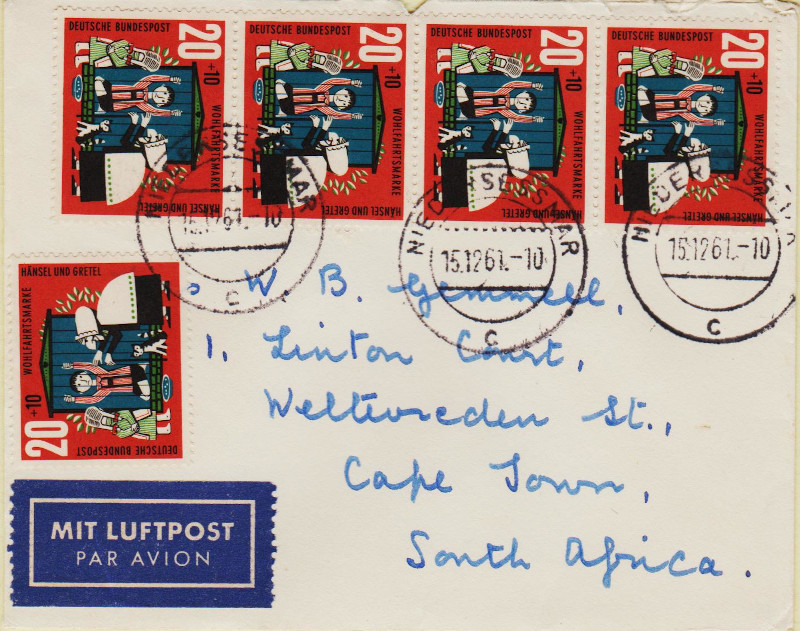 DEUTSCHE BUNDESPOST 20 +10 WOHLFAHRTSMARKE HÄNSEL UND GRETEL
DEUTSCHE BUNDESPOST 20 +10 WOHLFAHRTSMARKE HÄNSEL UND GRETEL
DEUTSCHE BUNDESPOST 20 +10 WOHLFAHRTSMARKE HÄNSEL UND GRETEL
DEUTSCHE BUNDESPOST 20 +10 WOHLFAHRTSMARKE HÄNSEL UND GRETEL
15.1261.-10
C
NIEDERSENSMAR
15.1261.-10
C
15.1261.-10
C
HÄNSEL UND GRETEL
WOHLFAHRTSMARKE
20 +10
DEUTSCHE BUNDESPOST
W. B. Gemmell,
1, Linton Court,
Weltevreden St.,
Cape Town,
South Africa.
MIT LUFTPOST
PAR AVION